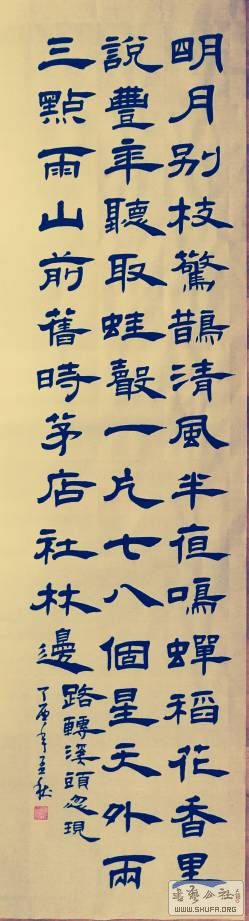 明月别枝驚鵲清風半夜鳴蟬稻花香里
說豐年聽取蛙聲一片七八個星天外兩
三點雨山前舊時茅店社林邊
路轉溪頭忽現
丁酉年孟秋
書藝公社
WWW.SHUFA.ORG